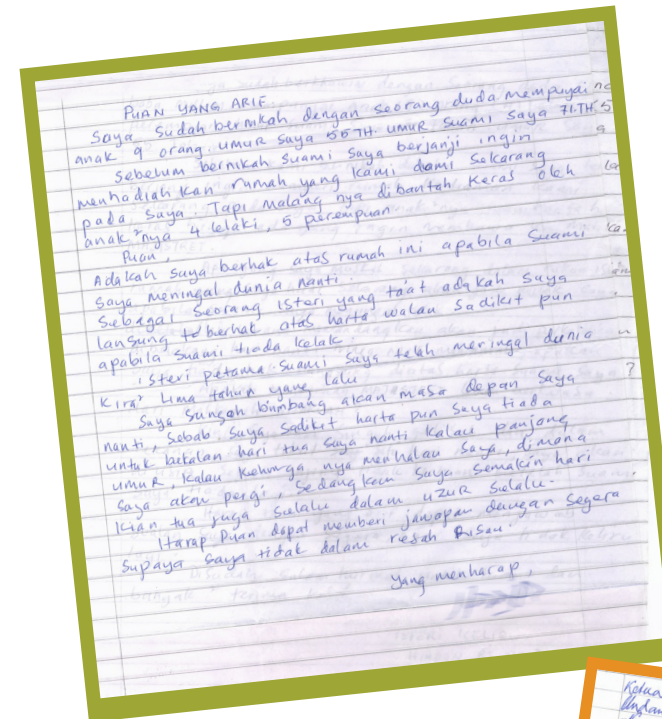 PUAN YANG ARIF
Saya sudah bernikah dengan seorang duda mempuyai
anak 9 orang umur saya 55TH umur suami saya 71.TH
Sebelum bernikah suami saya berjanji ingin
menhadiahkan rumah yang kami diami sekarang
pada saya. Tapi malang nya dibantah keras oleh
anak²nya 4 lelaki, 5 perempuan
Puan,
Adakah saya berhak atas rumah ini apabila suami
saya meningal dunia nanti.
Sebagai seorang istari yang taat adakah saya
lansung tberhak atas harta walau sadikit pun
apabila suami tiada kelak.
isteri petama suami saya telah meningal dunia
kira² lima tahun yang lalu
Saya sungoh bimbang akan masa depan saya
nanti, sebab saya sadikit harta pun saya tiada
untuk bekalan hari tua saya nanti kalau panjang
umur, kalau keluarga nya menhalau saya, dimana
saya akan pergi, sedangkan saya semakin hari
kian tua juga selalu dalam uzur selalu.
Harap Puan dapat memberi jawapan dengan segera
supaya saya tidak dalam resah risau.
yang menharap,